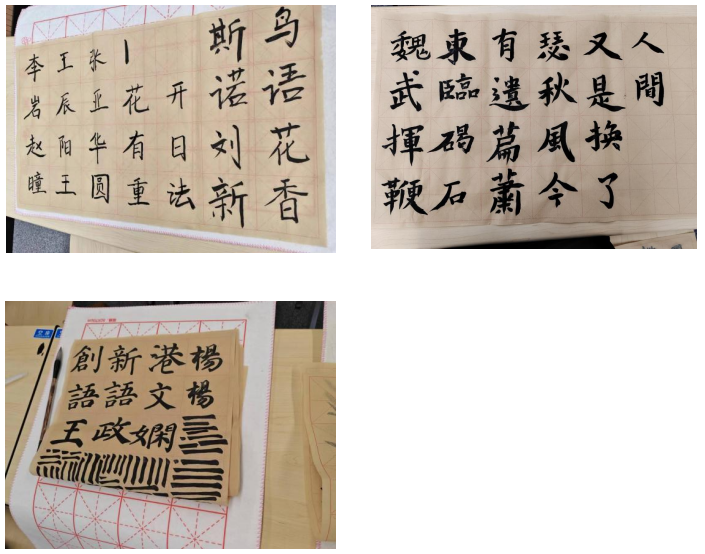 李岩赵瞳
王辰阳王
张亚华圆
花有重
开日法
斯诺刘新
鸟语花香
魏武揮鞭
東臨碣石
有遺篇蕭
瑟秋風今
又是換了
人間
創新港楊
語語文楊
王政嫻